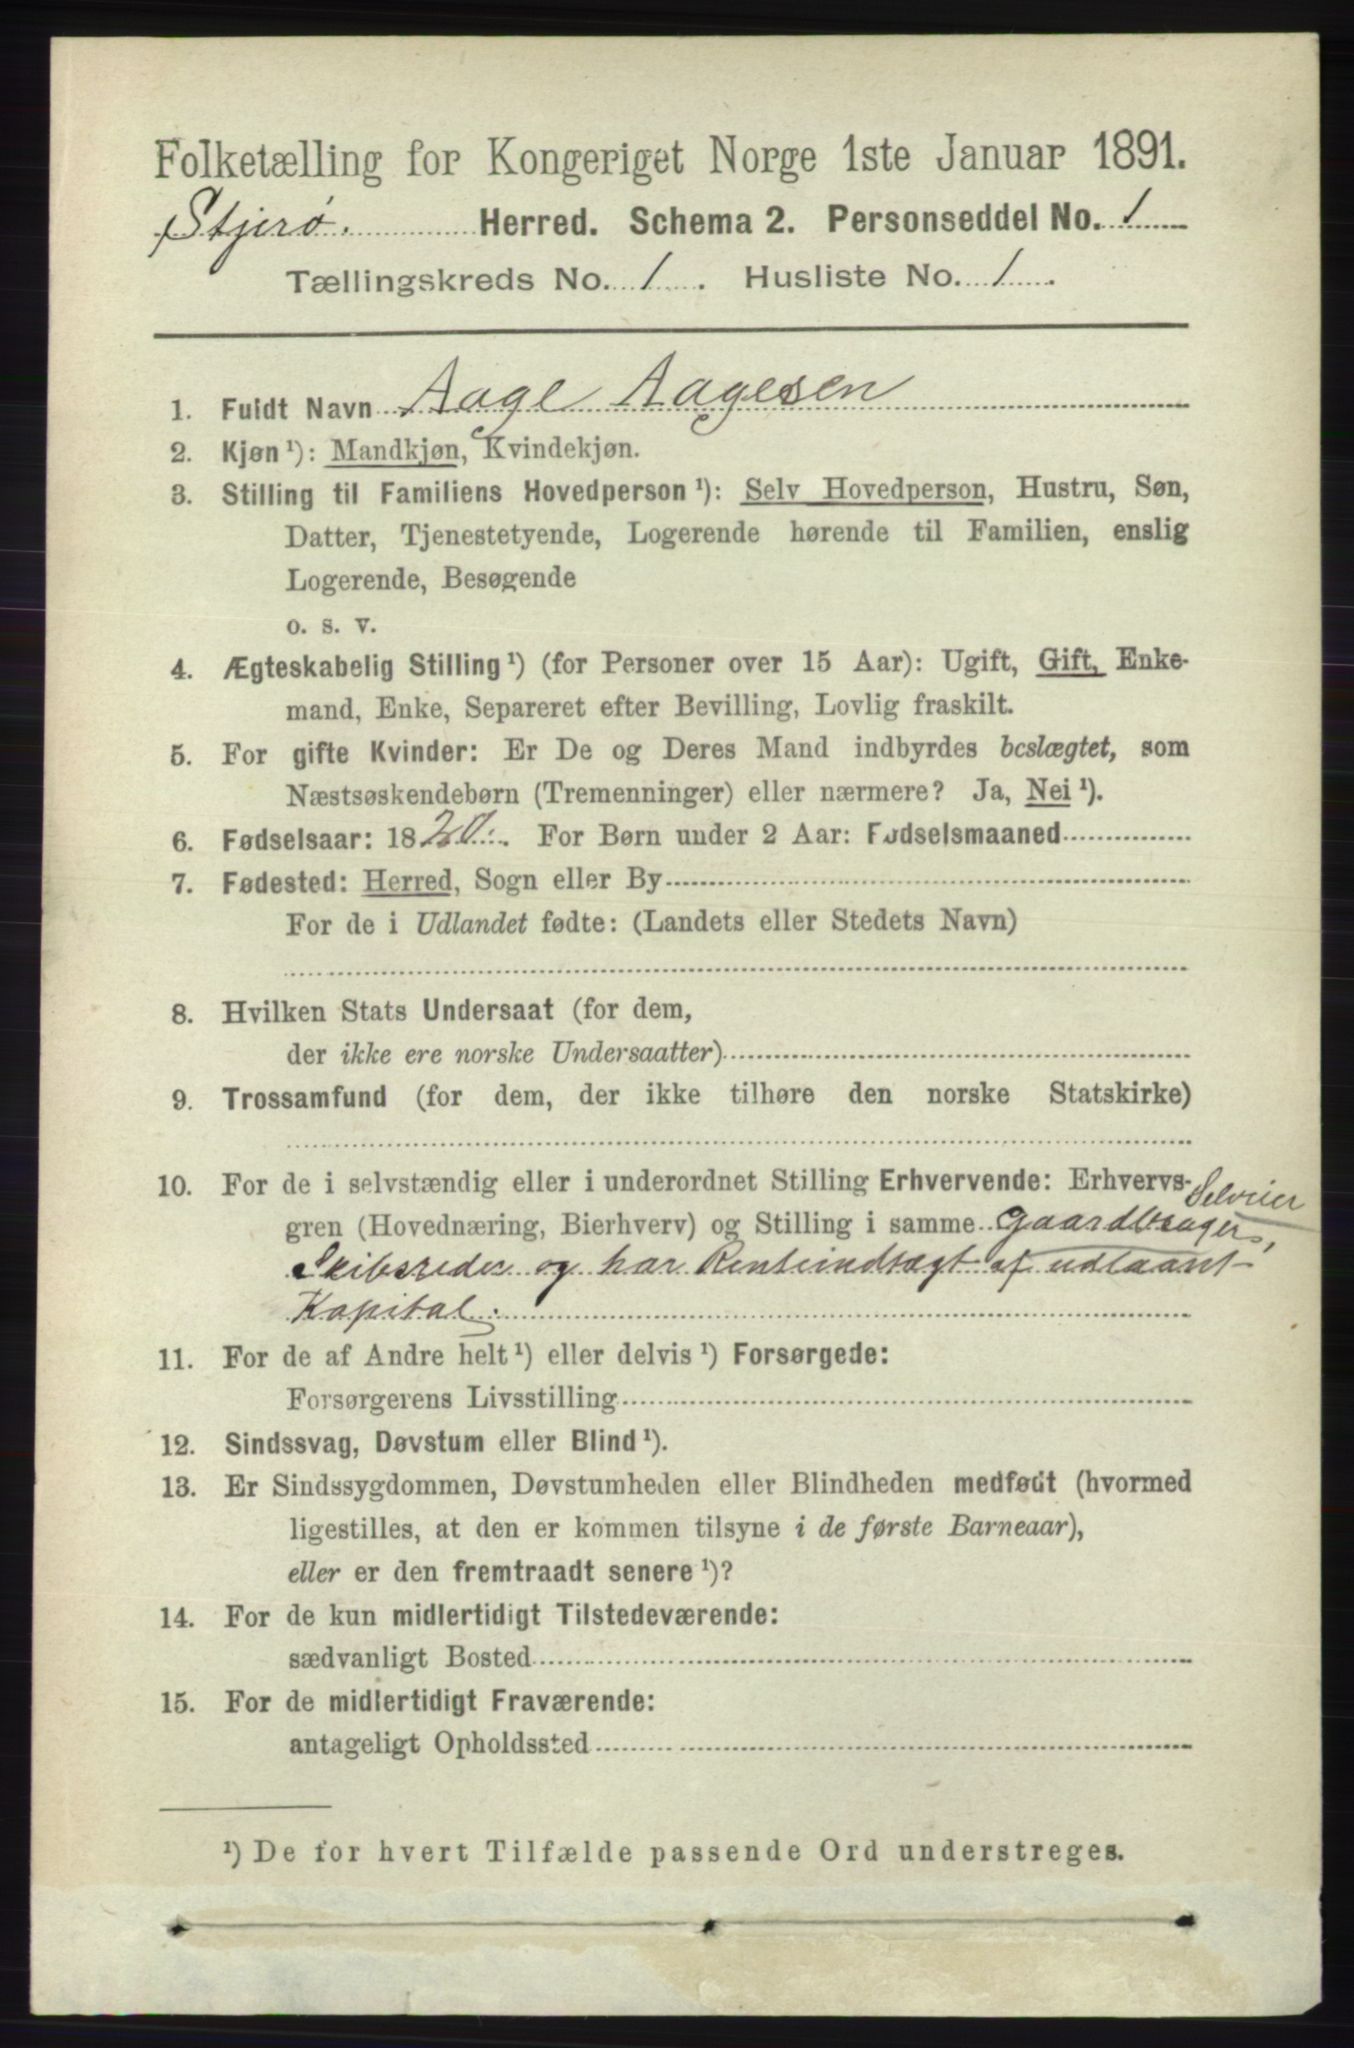 Folketælling for Kongeriget Norge 1ste Januar 1891.
Stjerø. Herred. Schema 2. Personseddel No. 1
Tællingskreds No. 1. Husliste No. 1.
1. Fuldt Navn Aage Aagesen
2. Kjøn¹): Mandkjøn, Kvindekjøn.
3. Stilling til Familiens Hovedperson¹): Selv Hovedperson, Hustru, Søn,
Datter, Tjenestetyende, Logerende hørende til Familien, enslig
Logerende, Besøgende
o. s. v.
4. Ægteskabelig Stilling¹) (for Personer over 15 Aar): Ugift, Gift, Enke-
mand, Enke, Separeret efter Bevilling, Lovlig fraskilt.
5. For gifte Kvinder: Er De og Deres Mand indbyrdes beslægtet, som
Næstsøskendebørn (Tremenninger) eller nærmere? Ja, Nei¹).
6. Fødselsaar: 1820. For Børn under 2 Aar: Fødselsmaaned
7. Fødested: Herred, Sogn eller By
For de i Udlandet fødte: (Landets eller Stedets Navn)
8. Hvilken Stats Undersaat (for dem,
der ikke ere norske Undersaatter)
9. Trossamfund (for dem, der ikke tilhøre den norske Statskirke)
10. For de i selvstændig eller i underordnet Stilling Erhvervende: Erhvervs-
Selveier
gren (Hovednæring, Bierhverv) og Stilling i samme Gaardbruger,
Skibsreder og har Renteindtægt af udlaant
Kapital.
11. For de af Andre helt¹) eller delvis¹) Forsørgede:
Forsørgerens Livsstilling
12. Sindssvag, Døvstum eller Blind¹).
13. Er Sindssygdommen, Døvstumheden eller Blindheden medfødt (hvormed
ligestilles, at den er kommen tilsyne i de første Barneaar),
eller er den fremtraadt senere¹)?
14. For de kun midlertidigt Tilstedeværende:
sædvanligt Bosted
15. For de midlertidigt Fraværende:
antageligt Opholdssted
¹) De for hvert Tilfælde passende Ord understreges.